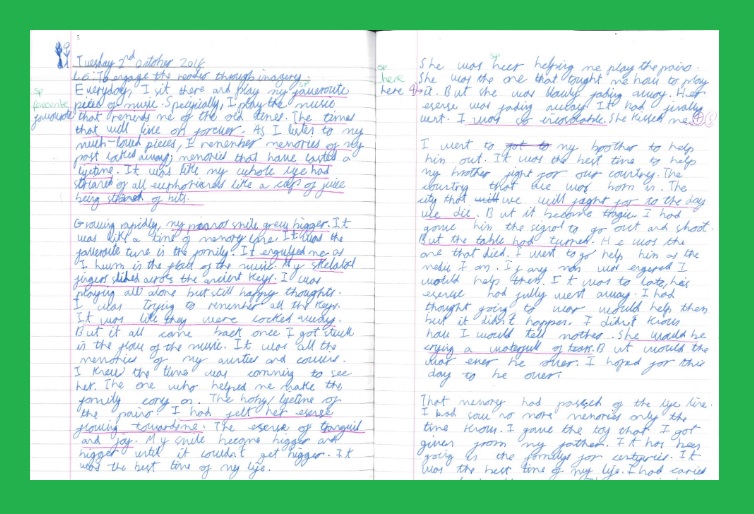 Tuesday 2nd October 2016
Lo: To engage the reader through imagery.
Everyday, I sit there and play my faveroute
sp
favourite
favourite
pieces of music. Specically, I play the music
that reminds me of the old times. The times
that will live on forever. As I listen to my
much-touch pieces, I remember memories of my
past locked away; memories that have lasted a
lifetime. It was like my whole life had
of all euphoriness like a cup of juice
being of hits.
Growing rapidly, my smile grew bigger. It
was like a time of memory lane. It was the
faveroute tune in the family. It engulfed me as
I hum in the flow of the music. My skeletol
fingers slided across the ancient keys. I was
playing all alone but still happy thoughts.
I was trying to remember all the keys.
It was like they were locked away.
But it all came back once I got stuck
in the flow of the music. It was all the
memories of my aunties and cousins.
I knew the time was coming to see
her. The one who helped me make the
family cary on. The
the pairo I had felt her esense
flowing towardsme. The esense of tranquil
and joy. My smile become bigger and
bigger until it couldn't get bigger. It
was the best time of my life.
She was heer helping me play the pairo.
sp
here
here
She was the one that tought me how to play
it. But she was slowly fading away. Her
esense was fading away. It had finally
went. I was so inconsolable. She killed me.
I went to my brother to help
him out. It was the best time to help
my brother fight for our country. The
country that die was born in. The
city that we will faght for to the day
we die. But it become tragic. I had
gave him the signal to go out and shoot.
But the table had turned. He was the
one that died. I went to go help him as the
medic I am. If any was I
would help them. It was to late, his
esense had fully went away. I had
thought going to war would help them
but it didn't happen. I didn't know
how I would tell mother. She would be
crying a waterfull of tears. But would the
war ever be over. I hoped for this
day to be over.
That memory had passed of the life line.
I had saw no more memories only the
time know. I gave the toy that I got
given from my father. It has been
going in the familys for centuries. It
was the best time of my life. I had caried